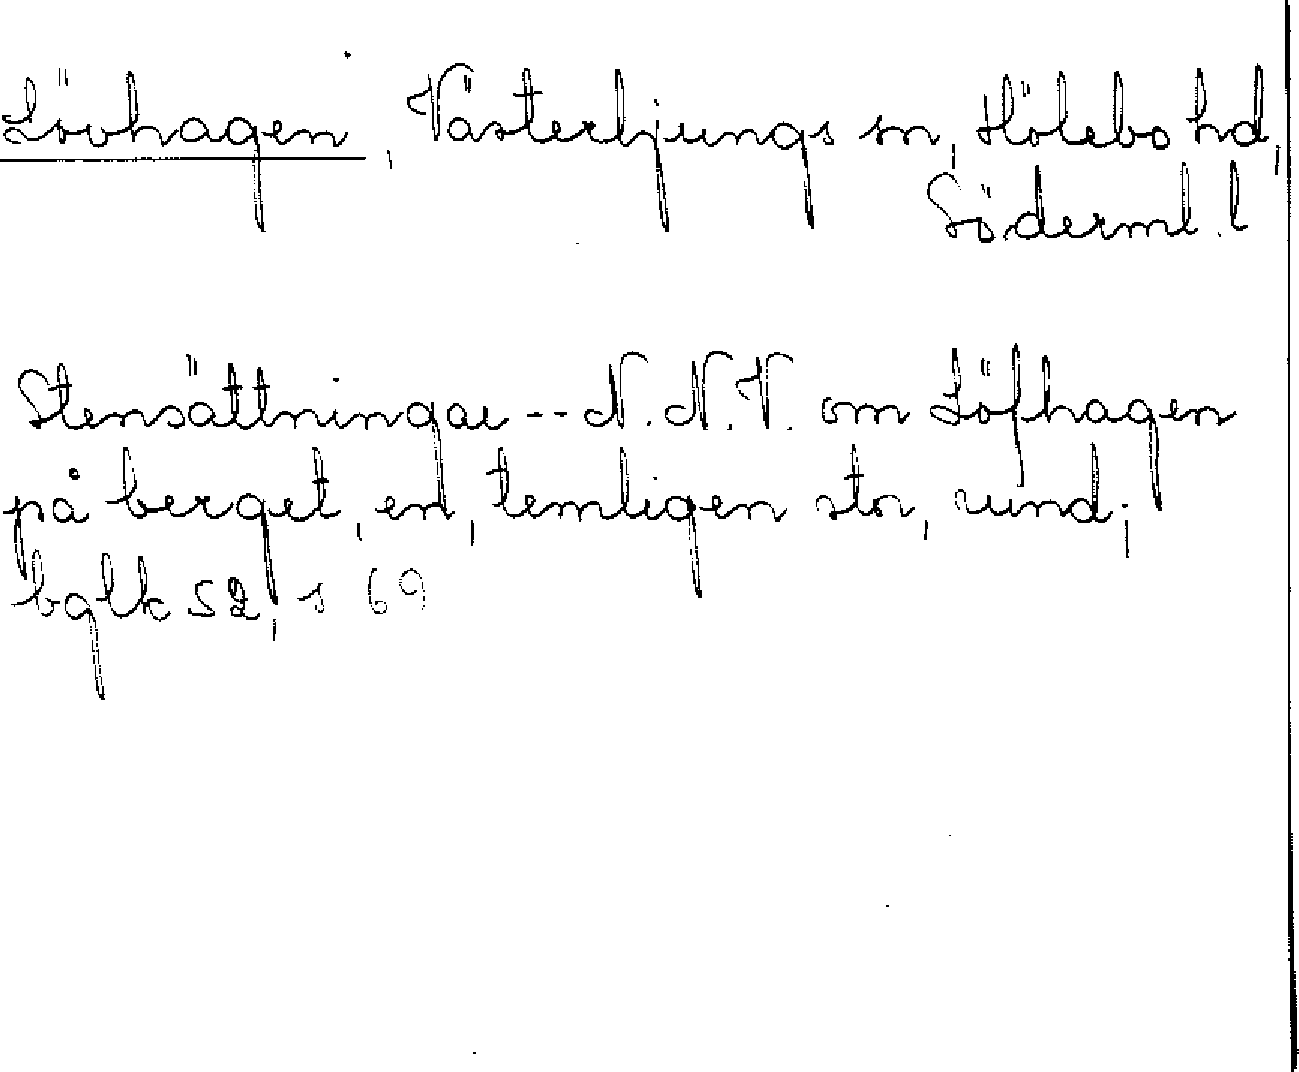 Lövhagen, Västerljungs sn, Hölebo hd,
Söderml. l
Stensättningar -- N.N.V. om Löfhagen
på berget, en, temligen stor, rund;
bglk 52, s 69